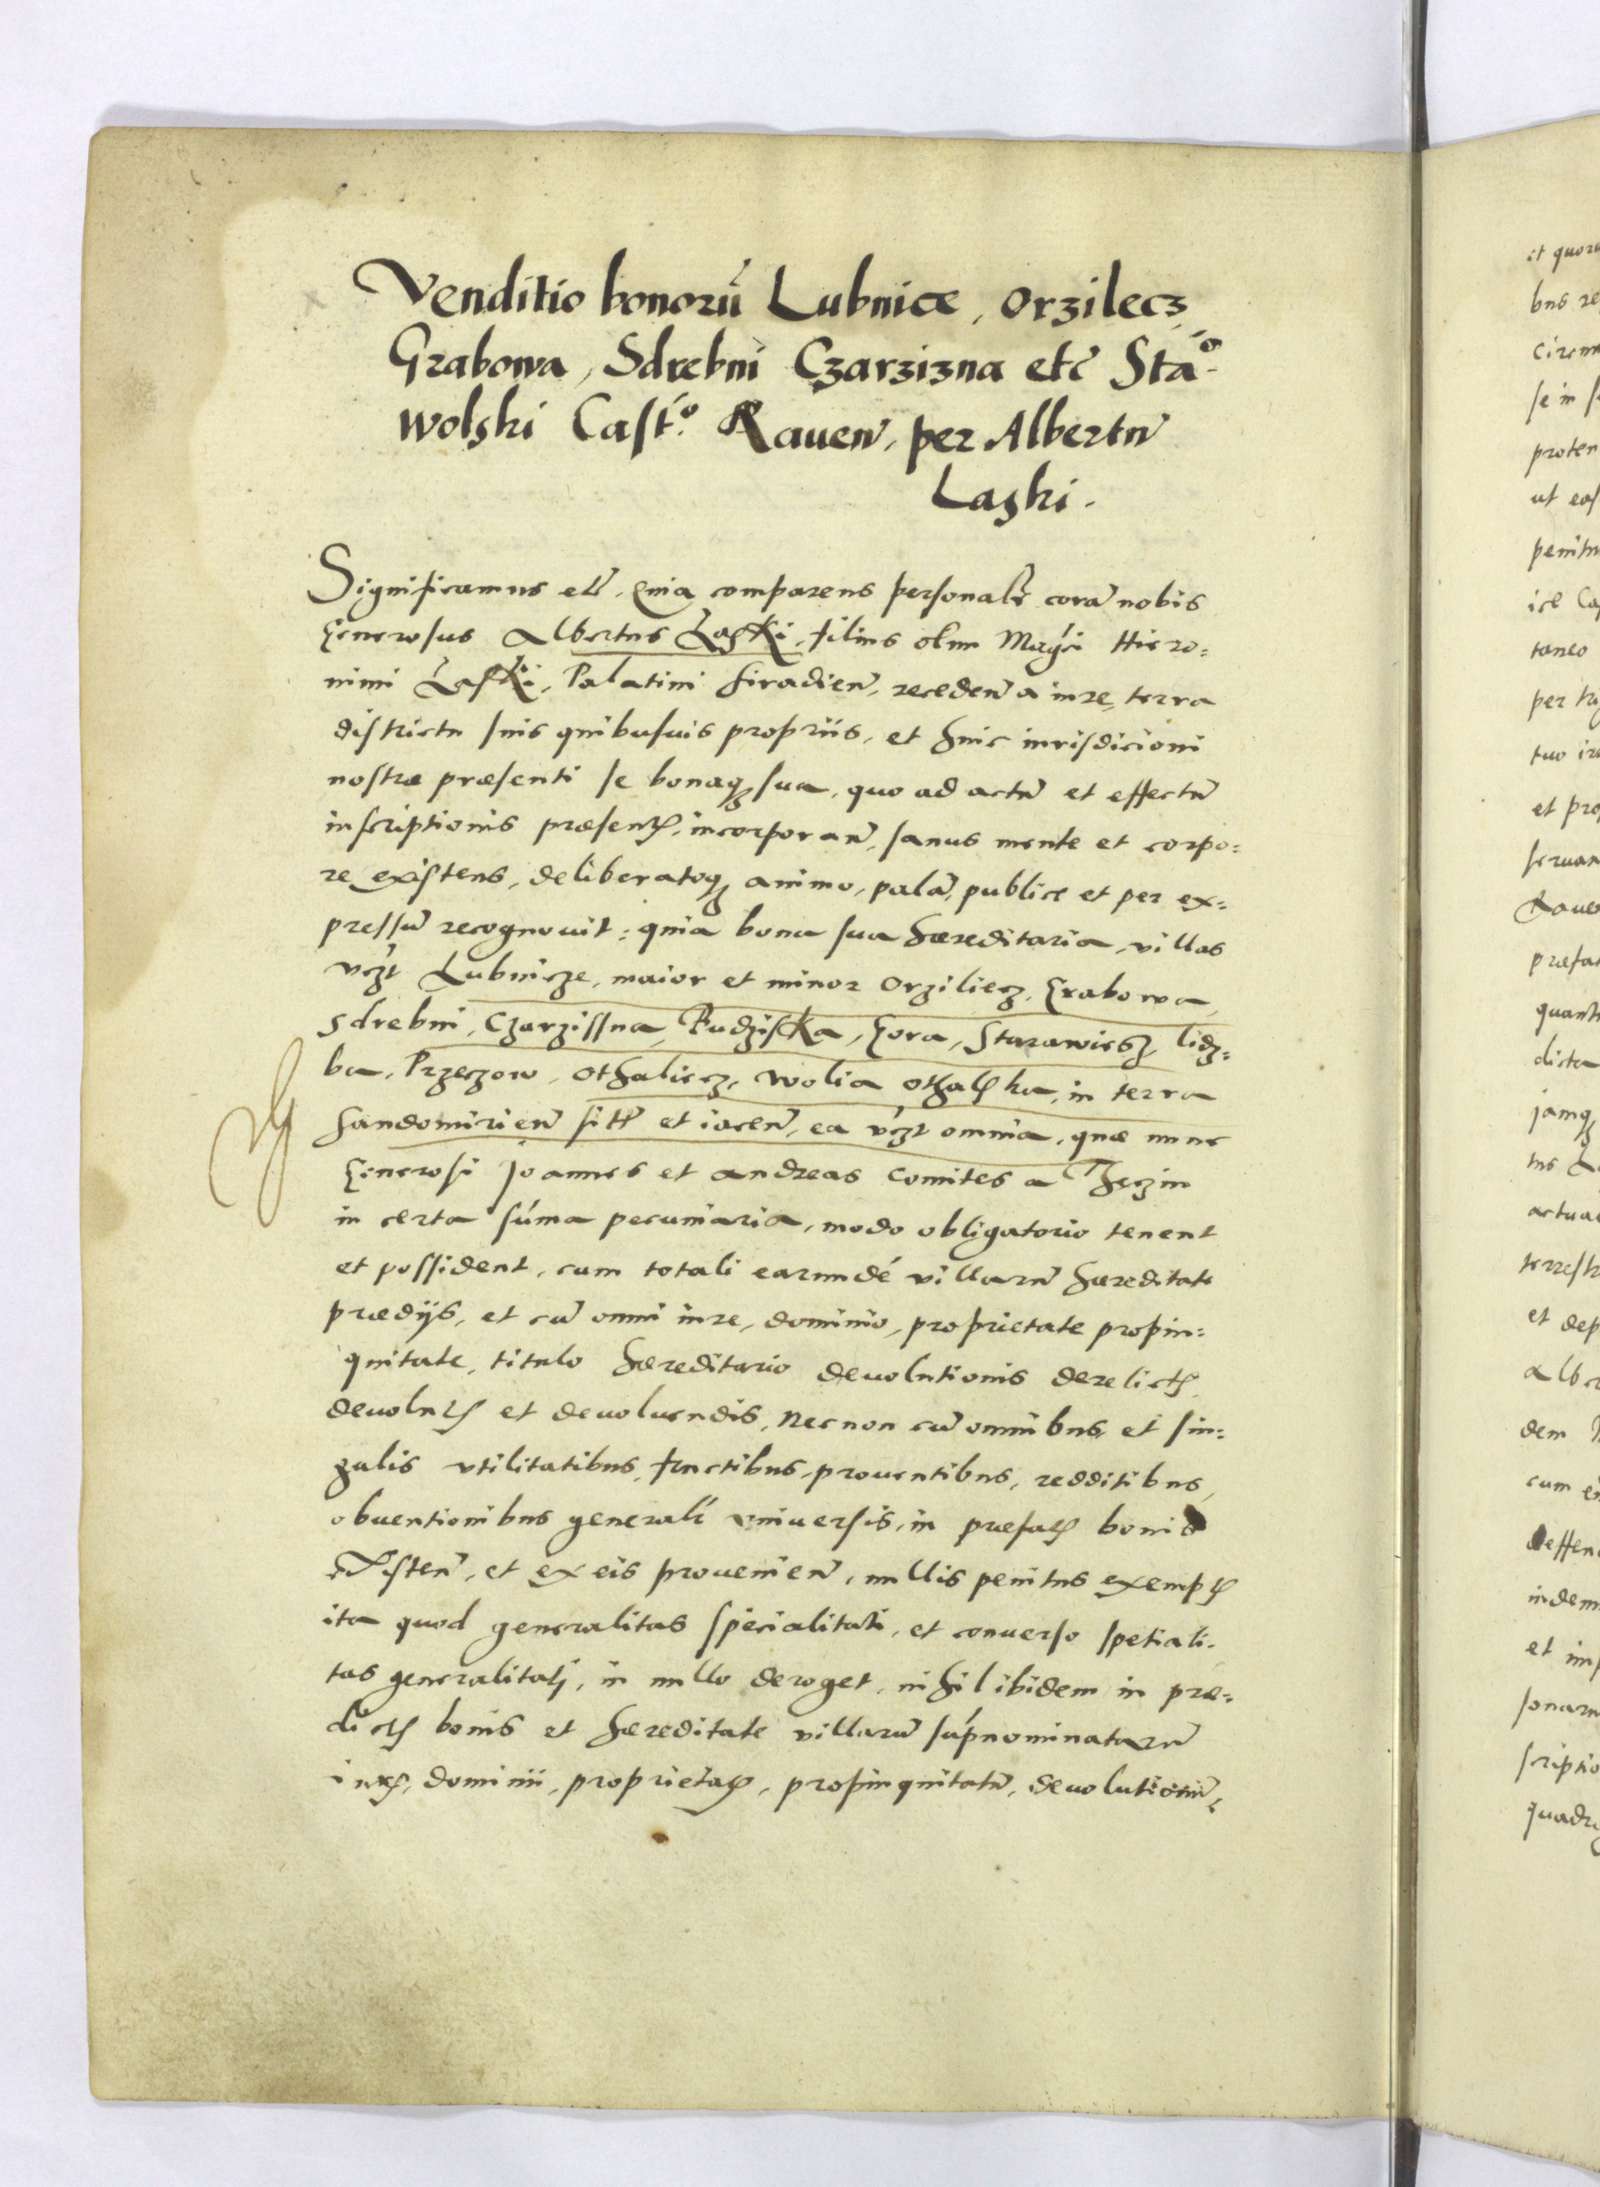 Venditio bonorū Lubnice, Orzilecz,
Grabowa, Sdrebni Czarzizna etc̄ Sta.º
Wolski Castº. Rauen̄, per Albertū
Laski.
Significamus etc̄, Quia comparens personalr̄ corā nobis
Generosus Albertus Laski, filius olim Magci Hiero=
nimi Laski, Palatini Siradien̄, receden̄ a iure, terra
districtu suis quibusuis propriis, et huic iurisdicioni
nostræ præsenti se bonaqꝫ sua, quo ad actū et effectū
inscriptionis præsentꝭ, incorporan̄, sanus mente et corpo=
re existens, deliberatoqꝫ animo, palā, publice et per ex=
pressū recognouit: quia bona sua hæreditaria, villas
vczt Lubnicze, maior et minor Orziliecz, Grabowa,
Sdrebni, Czarzissna, Budziska, Gora, Starawiesz, lidz=
ba, Przeczow, Othaliecz, Wolia Othalska, in terra
Sandomirien̄ sitꝭ et iacen̄, ea vczt omnia, quæ nunc
Generosi Joannes et Andreas Comites a Theczin
in certa súma pecuniaria, modo obligatorio tenent
et possident, cum totali earundē villarū hæreditate
prædijs, et cū omni iure, dominio, proprietate propin=
quitate, titulo hæreditario deuolutionis derelictꝭ,
deuolutꝭ et deuoluendis, necnon cū omnibus et sin=
gulis vtilitatibus, fructibus, prouentibus, redditibus,
obuentionibus generalr̄ vniuersis, in præfatꝭ bonis
existen̄, et ex eis prouenien̄, nullis penitus exemptꝭ
ita quod generalitas specialitati, et conuerso spetiali-
tas generalitati, in nullo deroget, nihil ibidem in præ=
dictꝭ bonis et hæreditate villarū súpnominatarū
iurꝭ, dominii, proprietatꝭ, propinquitatū, deuolutionū,
et quoru
bus re
circum
se in s
proten
ut eas
penitu
taneo
per tri
et pro
seruan
Rauen
præfat
quant
dicta
jamqꝫ
tus La
actua
terrestr
et dep
Alber
dem
cum
deffen
indem
et imp
sonaru
scriptio
quadr